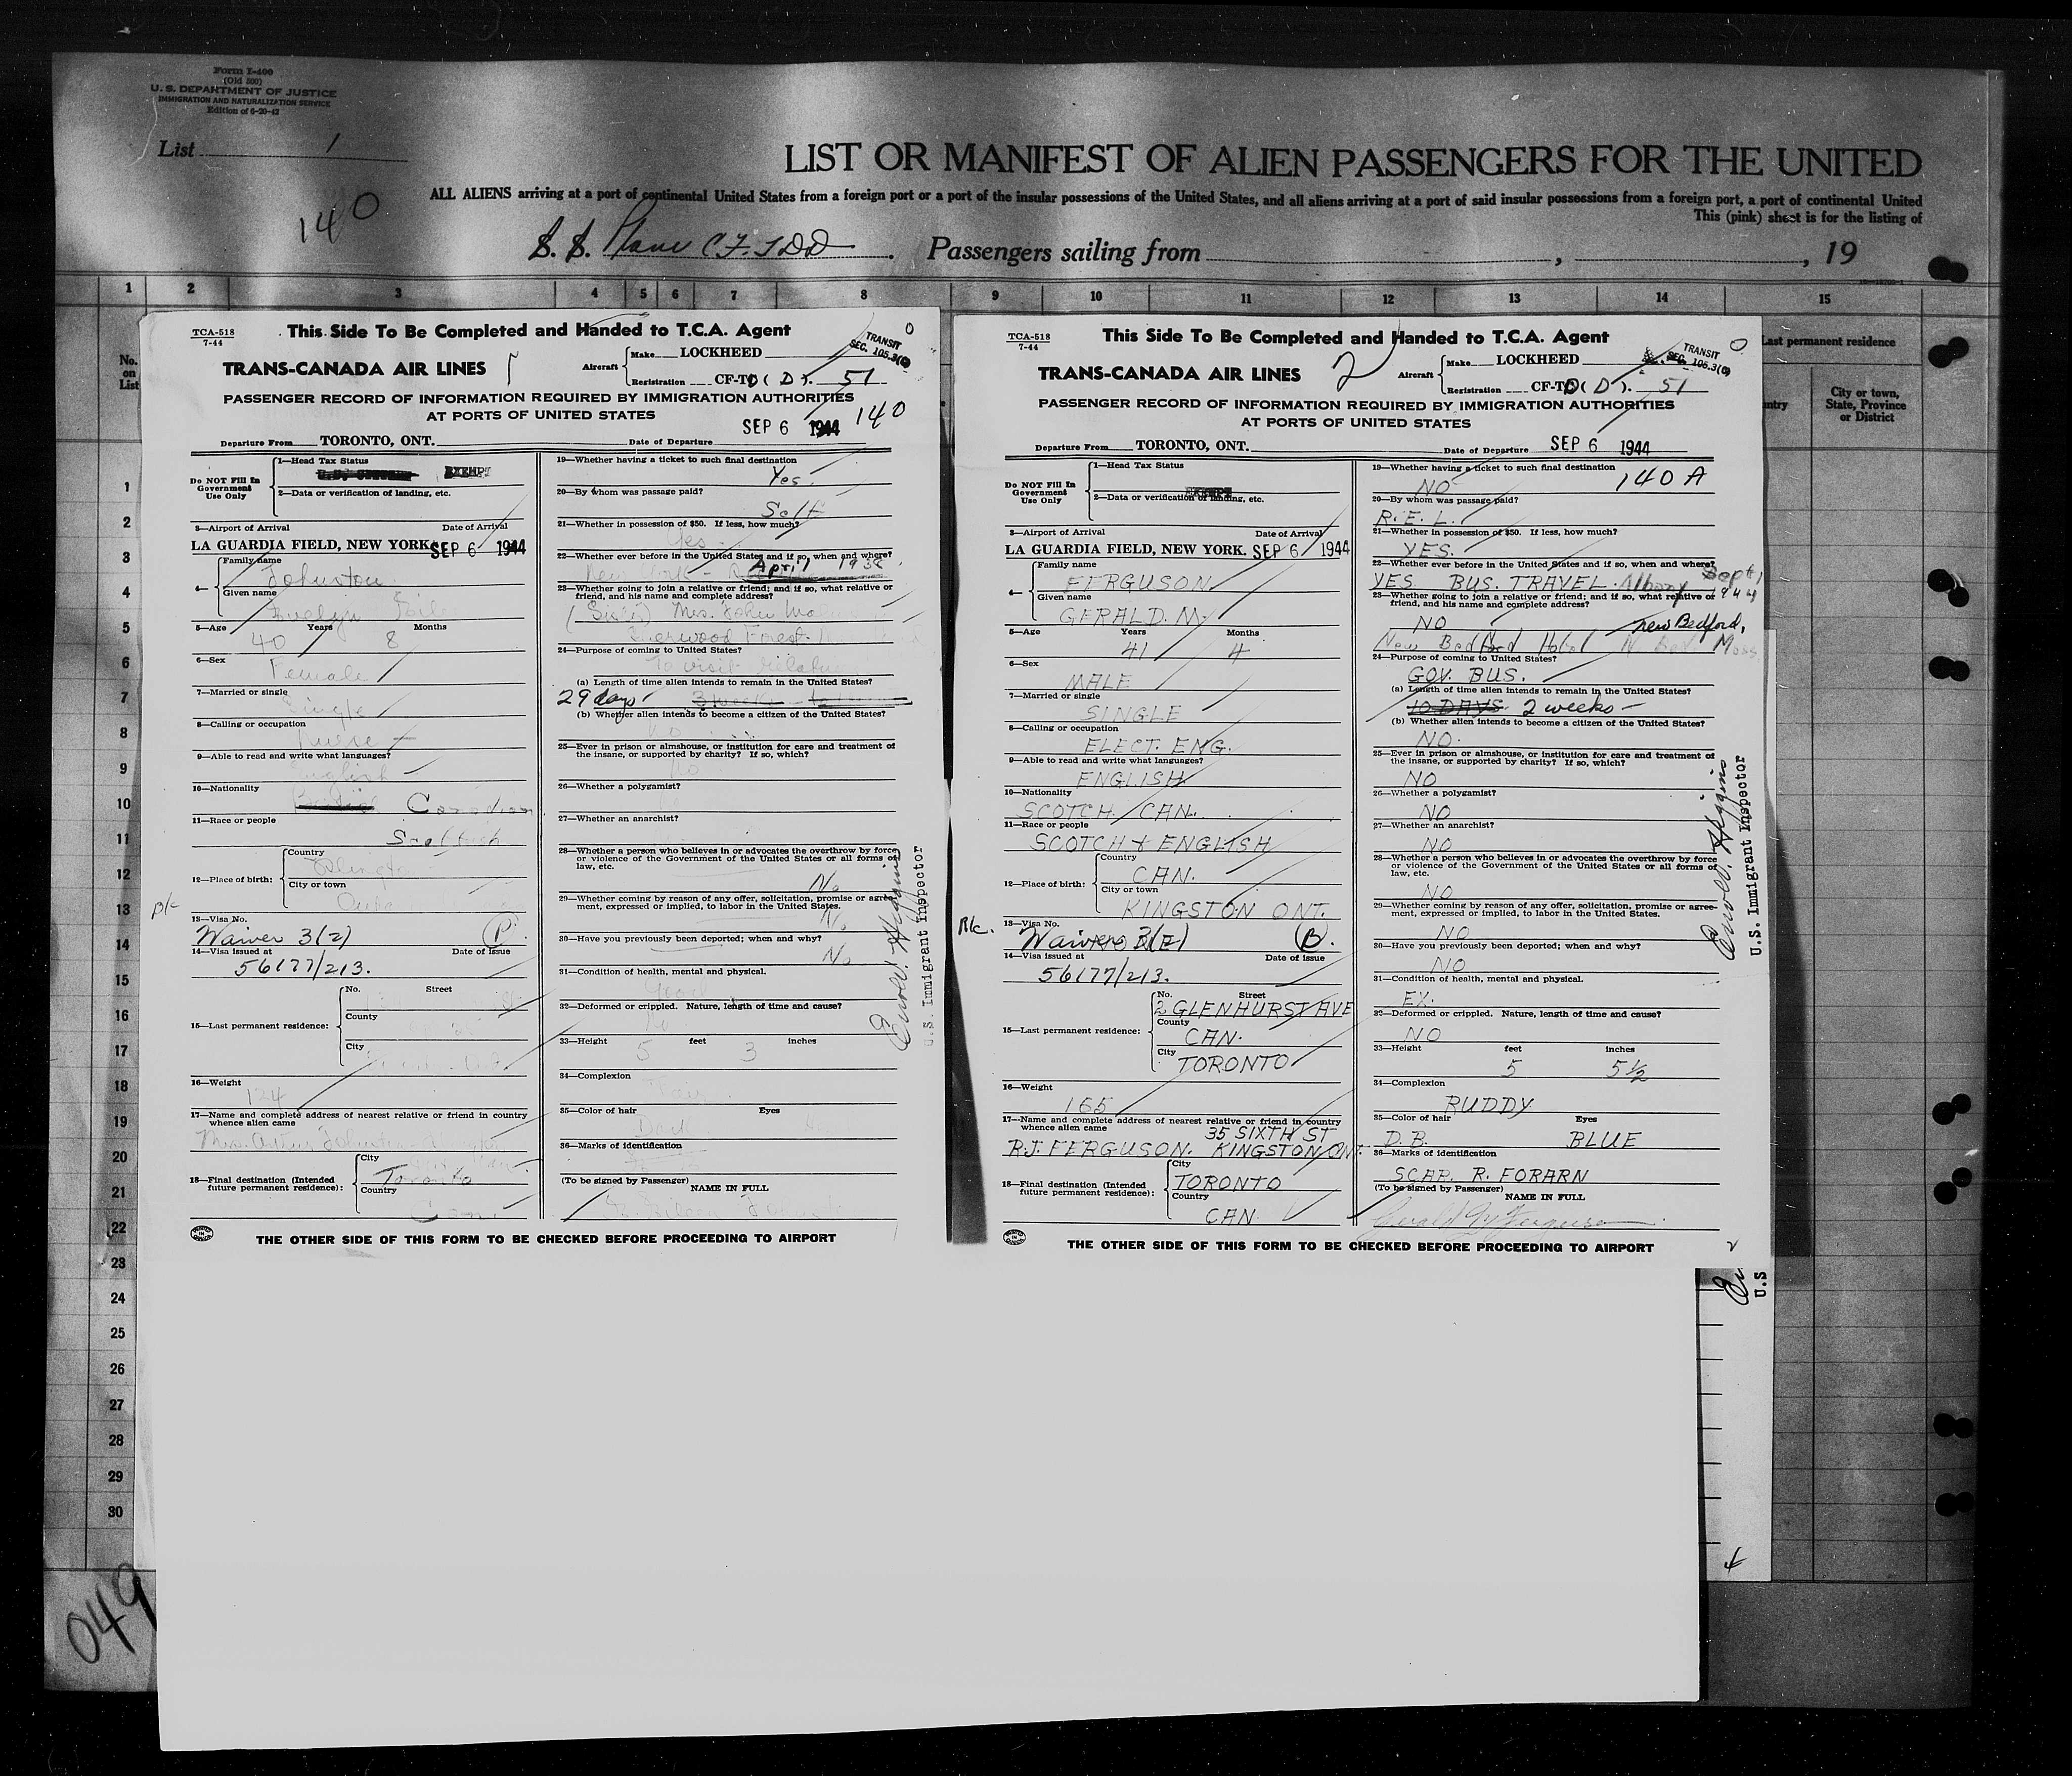 Form I-400
(Old 500)
U. S. DEPARTMENT OF JUSTICE
IMMIGRATION AND NATURALIZATION SERVICE
Edition of 6-20-43
List 1
140
LIST OR MANIFEST OF ALIEN PASSENGERS FOR THE UNITED
ALL ALIENS arriving at a port of continental United States from a foreign port or a port of the insular possessions of the United States, and all aliens arriving at a port of said insular possessions from a foreign port, a port of continental United
This (pink) sheet is for the listing of
S. S. Plane CF. TDD. Passengers sailing from , , 19
1 2 3 4 5 6 7 8 9 10 11 12 13 14 15
No. on List
Last permanent residence
City or town, State, Province or District
1
2
3
4
5
6
7
8
9
10
11
12
13
14
15
16
17
18
19
20
21
22
23
24
25
26
27
28
29
30
049
TCA-518
7-44
This Side To Be Completed and Handed to T.C.A. Agent
TRANS-CANADA AIR LINES 1
Aircraft
Make LOCKHEED
Registration CF-TD (D). 51
TRANSIT
SEC. 105.3(c)
PASSENGER RECORD OF INFORMATION REQUIRED BY IMMIGRATION AUTHORITIES
AT PORTS OF UNITED STATES
140
Departure From TORONTO, ONT. Date of Departure SEP 6 1944
Do NOT Fill In Government Use Only
1—Head Tax Status
EXEMPT
2—Data or verification of landing, etc.
3—Airport of Arrival Date of Arrival
LA GUARDIA FIELD, NEW YORK. SEP 6 1944
4— Family name
Johnston
Given name
Evelyn
5—Age Years Months
40 8
6—Sex
Female
7—Married or single
Single
8—Calling or occupation
Nurse
9—Able to read and write what languages?
English
10—Nationality
Canadian
11—Race or people
Scottish
12—Place of birth: Country
City or town
13—Visa No.
Waiver 3(2) (P)
14—Visa issued at Date of Issue
56177/213.
15—Last permanent residence: No. Street
County
City
16—Weight
124
17—Name and complete address of nearest relative or friend in country whence alien came
18—Final destination (Intended future permanent residence): City
Toronto
Country
Can.
19—Whether having a ticket to such final destination
Yes.
20—By whom was passage paid?
Self
21—Whether in possession of $50. If less, how much?
Yes
22—Whether ever before in the United States and if so, when and where?
New York - April 1938
23—Whether going to join a relative or friend; and if so, what relative or friend, and his name and complete address?
(Sister) Mrs. John
Sherwood Forest
24—Purpose of coming to United States?
To visit
(a) Length of time alien intends to remain in the United States?
29 days 3 weeks
(b) Whether alien intends to become a citizen of the United States?
No
25—Ever in prison or almshouse, or institution for care and treatment of the insane, or supported by charity? If so, which?
No
26—Whether a polygamist?
27—Whether an anarchist?
28—Whether a person who believes in or advocates the overthrow by force or violence of the Government of the United States or all forms of law, etc.
No
29—Whether coming by reason of any offer, solicitation, promise or agreement, expressed or implied, to labor in the United States.
No
30—Have you previously been deported; when and why?
No
31—Condition of health, mental and physical.
Good
32—Deformed or crippled. Nature, length of time and cause?
No
33—Height feet inches
5 3
34—Complexion
35—Color of hair Eyes
36—Marks of identification
(To be signed by Passenger) NAME IN FULL
U.S. Immigrant Inspector
THE OTHER SIDE OF THIS FORM TO BE CHECKED BEFORE PROCEEDING TO AIRPORT
TCA-518
7-44
This Side To Be Completed and Handed to T.C.A. Agent
TRANS-CANADA AIR LINES 2
Aircraft
Make LOCKHEED
Registration CF-TD (D). 51
TRANSIT
SEC. 105.3(c)
PASSENGER RECORD OF INFORMATION REQUIRED BY IMMIGRATION AUTHORITIES
AT PORTS OF UNITED STATES
Departure From TORONTO, ONT. Date of Departure SEP 6 1944
Do NOT Fill In Government Use Only
1—Head Tax Status
EXEMPT
2—Data or verification of landing, etc.
3—Airport of Arrival Date of Arrival
LA GUARDIA FIELD, NEW YORK. SEP 6 1944
4— Family name
FERGUSON
Given name
GERALD. M.
5—Age Years Months
41 4
6—Sex
MALE
7—Married or single
SINGLE
8—Calling or occupation
ELECT. ENG.
9—Able to read and write what languages?
ENGLISH
10—Nationality
SCOTCH CAN.
11—Race or people
SCOTCH & ENGLISH
12—Place of birth: Country
CAN.
City or town
KINGSTON ONT.
13—Visa No.
Waiver 3(2) (B).
14—Visa issued at Date of Issue
56177/213.
15—Last permanent residence: No. Street
2 GLENHURST AVE
County
CAN.
City
TORONTO
16—Weight
165
17—Name and complete address of nearest relative or friend in country whence alien came
35 SIXTH ST
R.J. FERGUSON. KINGSTON ONT.
18—Final destination (Intended future permanent residence): City
TORONTO
Country
CAN.
19—Whether having a ticket to such final destination
NO 140 A
20—By whom was passage paid?
R. E. L.
21—Whether in possession of $50. If less, how much?
YES.
22—Whether ever before in the United States and if so, when and where?
YES BUS. TRAVEL. Albany Sept 1944
23—Whether going to join a relative or friend; and if so, what relative or friend, and his name and complete address?
NO New Bedford,
New Bedford Hotel N. Bed. Mass
24—Purpose of coming to United States?
GOV. BUS.
(a) Length of time alien intends to remain in the United States?
10 DAYS 2 weeks —
(b) Whether alien intends to become a citizen of the United States?
NO.
25—Ever in prison or almshouse, or institution for care and treatment of the insane, or supported by charity? If so, which?
NO
26—Whether a polygamist?
NO
27—Whether an anarchist?
NO
28—Whether a person who believes in or advocates the overthrow by force or violence of the Government of the United States or all forms of law, etc.
NO
29—Whether coming by reason of any offer, solicitation, promise or agreement, expressed or implied, to labor in the United States.
NO
30—Have you previously been deported; when and why?
NO
31—Condition of health, mental and physical.
EX.
32—Deformed or crippled. Nature, length of time and cause?
NO
33—Height feet inches
5 5½
34—Complexion
RUDDY
35—Color of hair Eyes
D. B. BLUE
36—Marks of identification
SCAR. R. FORARN
(To be signed by Passenger) NAME IN FULL
Gerald M Ferguson
U.S. Immigrant Inspector
THE OTHER SIDE OF THIS FORM TO BE CHECKED BEFORE PROCEEDING TO AIRPORT
U.S